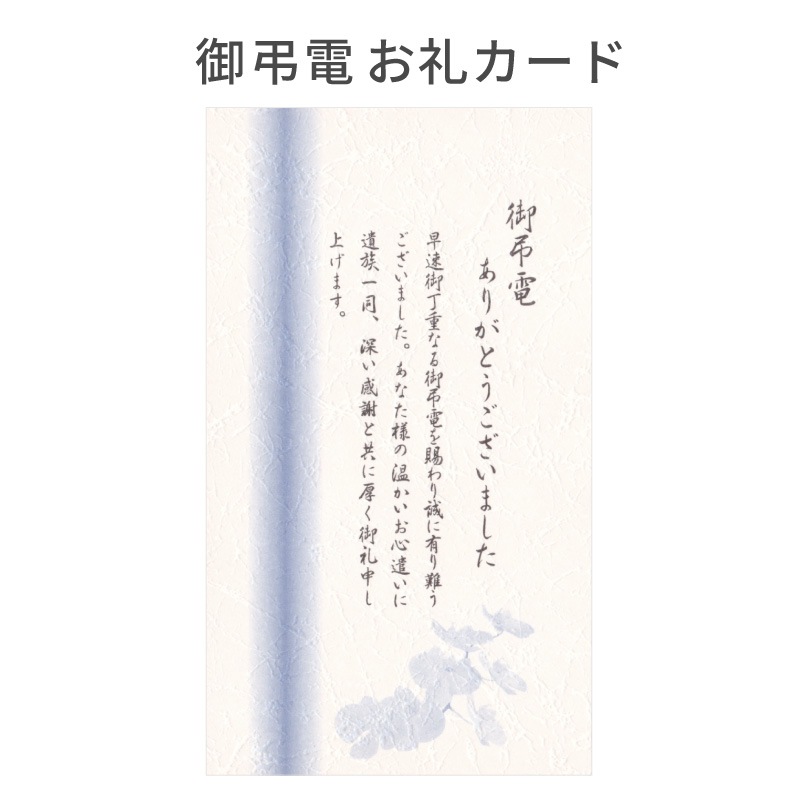 御弔電 お礼カード
御弔電
ありがとうございました
早速御丁重なる御弔電を賜わり誠に有り難う
ございました。あなた様の温かいお心遣いに
遺族一同、深い感謝と共に厚く御礼申し
上げます。